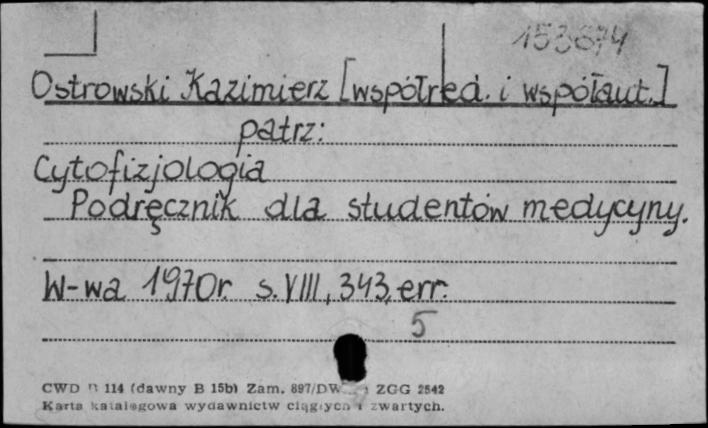 153874
Ostrowski Kazimierz [współred. i współaut.]
patrz:
Cytofizjologia
Podręcznik dla studentów medycyny.
W-wa 1970r. s. VIII, 343, err.
5
CWD 114 (dawny B 15b) Zam. 897/DW ZGG 2542
Karta katalogowa wydawnictw ciągłych i zwartych.